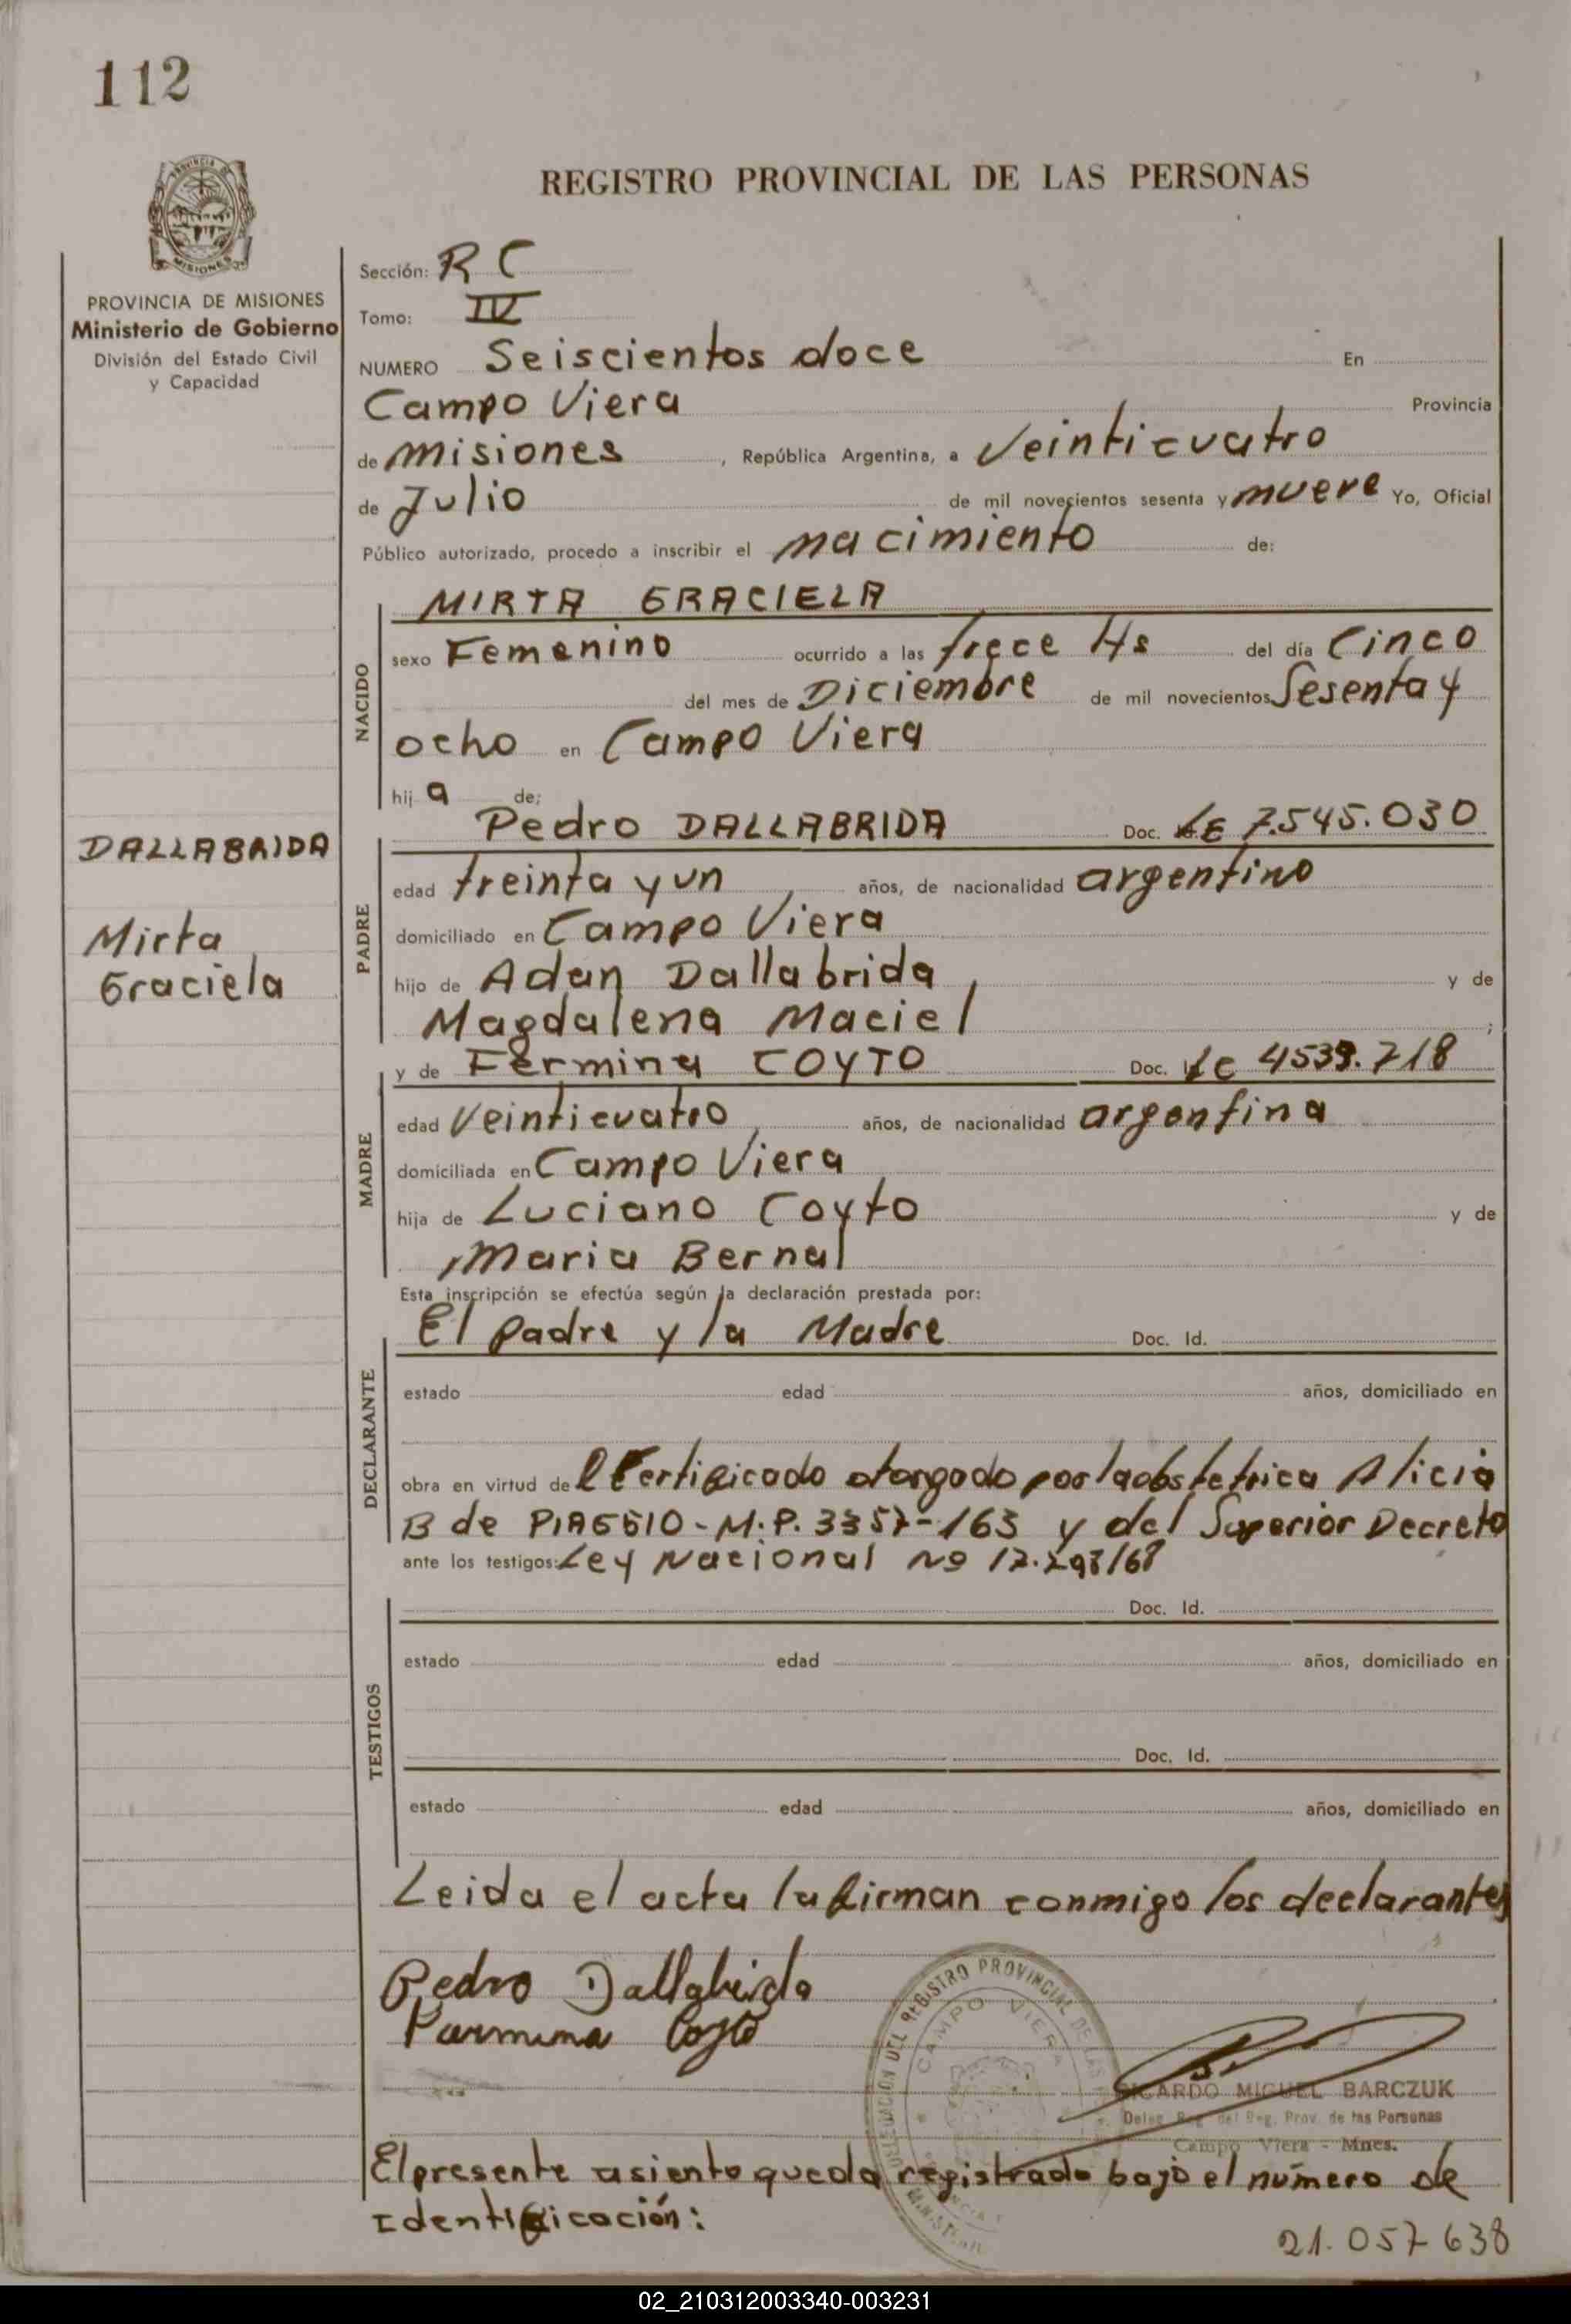 112
REGISTRO PROVINCIAL DE LAS PERSONAS
PROVINCIA DE MISIONES
Ministerio de Gobierno
División del Estado Civil
y Capacidad
Sección: R C
Tomo: IV
NUMERO Seiscientos doce En
Campo Viera Provincia
de misiones, República Argentina, a Veinticuatro
de Julio de mil novecientos sesenta y nueve Yo, Oficial
Público autorizado, procedo a inscribir el nacimiento de:
NACIDO
MIRTA GRACIELA
sexo Femenino ocurrido a las trece Hs del día Cinco
del mes de Diciembre de mil novecientos Sesenta y
ocho en Campo Viera
hija de;
DALLABRIDA
Mirta
Graciela
PADRE
Pedro DALLABRIDA Doc. LE 7.545.030
edad treinta y un años, de nacionalidad argentino
domiciliado en Campo Viera
hijo de Adan Dallabrida, y de
Magdalena Maciel ;
MADRE
y de Fermina COYTO Doc. 4539.718
edad Veinticuatro, años, de nacionalidad argentina
domiciliada en Campo Viera
hija de Luciano Coyto y de
Maria Bernal
Esta inscripción se efectúa según la declaración prestada por:
DECLARANTE
El padre y la Madre Doc. Id.
estado edad años, domiciliado en
obra en virtud del Certificado otorgado por la obstetrica Alicia
B de - M.P. 3357-163 y del Superior Decreto
ante los testigos: Ley Nacional No
TESTIGOS
Doc. Id.
estado edad años, domiciliado en
Doc. Id.
estado edad años, domiciliado en
Leida el acta la firman conmigo los declarantes
Pedro Dallabrida
Coyto
DELEGACION DEL REGISTRO PROVINCIAL DE LAS
CAMPO VIERA
RICARDO MIGUEL BARCZUK
Deleg. Reg. del Reg. Prov. de las Personas
Campo Viera - Mnes.
El presente asiento queda registrado bajo el número de
Identificación:
21.057 638
02_210312003340-003231